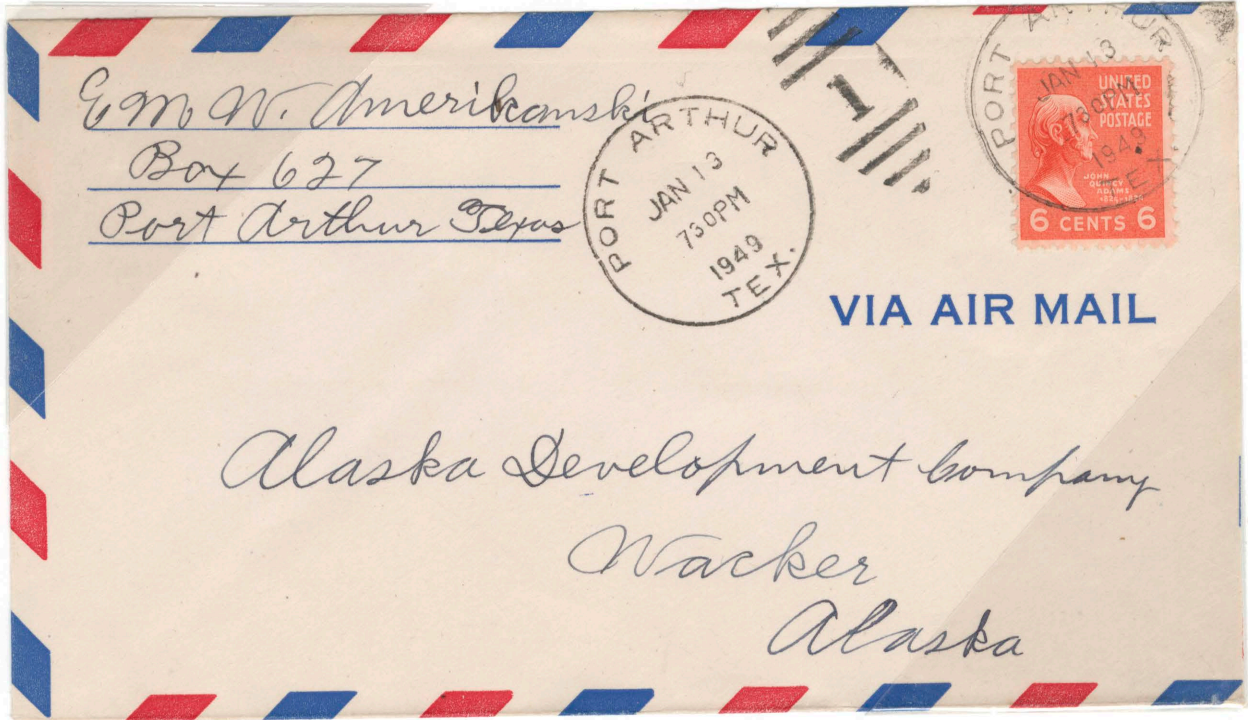 E M W. Amerikanski
Box 627
Port Arthur Texas
PORT ARTHUR
JAN 13
730PM
1949
TEX.
1
PORT ARTHUR
JAN 13
730PM
1949
TEX.
UNITED
STATES
POSTAGE
JOHN
QUINCY
ADAMS
6 CENTS 6
VIA AIR MAIL
Alaska Development Company
Wacker
Alaska